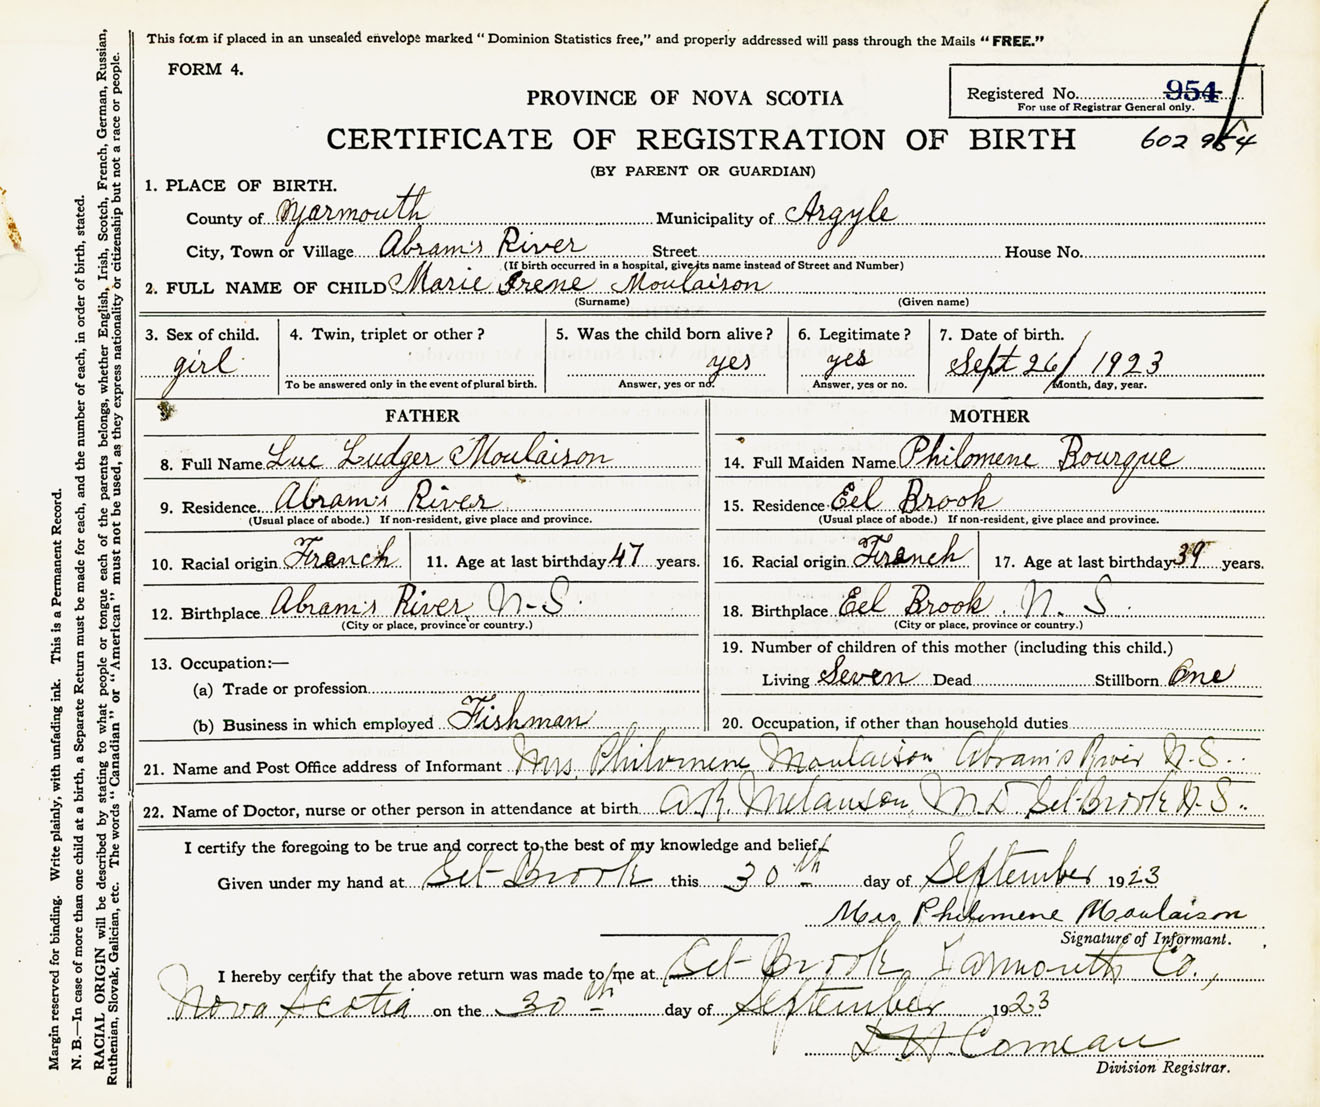 This form if placed in an unsealed envelope marked "Dominion Statistics free," and properly addressed will pass through the Mails "FREE."
FORM 4.
Registered No. 954
For use of Registrar General only.
PROVINCE OF NOVA SCOTIA
CERTIFICATE OF REGISTRATION OF BIRTH
602 954
(BY PARENT OR GUARDIAN)
1. PLACE OF BIRTH.
County of Yarmouth Municipality of Argyle
City, Town or Village Abram's River Street House No.
(If birth occurred in a hospital, give its name instead of Street and Number)
2. FULL NAME OF CHILD Marie Irene Moulaison
(Surname) (Given name)
3. Sex of child. 4. Twin, triplet or other? 5. Was the child born alive? 6. Legitimate? 7. Date of birth.
girl yes yes Sept 26/ 1923
To be answered only in the event of plural birth. Answer, yes or no. Answer, yes or no. Month, day, year.
FATHER
8. Full Name Luc Ludger Moulaison
9. Residence Abram's River
(Usual place of abode.) If non-resident, give place and province.
10. Racial origin French 11. Age at last birthday 47 years.
12. Birthplace Abram's River N-S.
(City or place, province or country.)
13. Occupation:—
(a) Trade or profession
(b) Business in which employed Fishman
MOTHER
14. Full Maiden Name Philomene Bourque
15. Residence Eel Brook
(Usual place of abode.) If non-resident, give place and province.
16. Racial origin French 17. Age at last birthday 39 years.
18. Birthplace Eel Brook N. S.
(City or place, province or country.)
19. Number of children of this mother (including this child.)
Living Seven Dead Stillborn One
20. Occupation, if other than household duties
21. Name and Post Office address of Informant Mrs. Philomene Moulaison Abram's River N.S.
22. Name of Doctor, nurse or other person in attendance at birth A.R. Melanson, M.D. Eel-Brook N.S.
I certify the foregoing to be true and correct to the best of my knowledge and belief.
Given under my hand at Eel-Brook this 30th day of September 1923
Mrs Philomene Moulaison
Signature of Informant.
I hereby certify that the above return was made to me at Eel-Brook, Yarmouth Co.,
Nova Scotia on the 30th day of September 1923
Comeau
Division Registrar.
Margin reserved for binding. Write plainly, with unfading ink. This is a Permanent Record.
N. B.—In case of more than one child at a birth, a Separate Return must be made for each, and the number of each, in order of birth, stated.
RACIAL ORIGIN will be described by stating to what people or tongue each of the parents belongs, whether English, Irish, Scotch, French, German, Russian,
Ruthenian, Slovak, Galician, etc. The words "Canadian" or "American" must not be used, as they express nationality or citizenship but not a race or people.